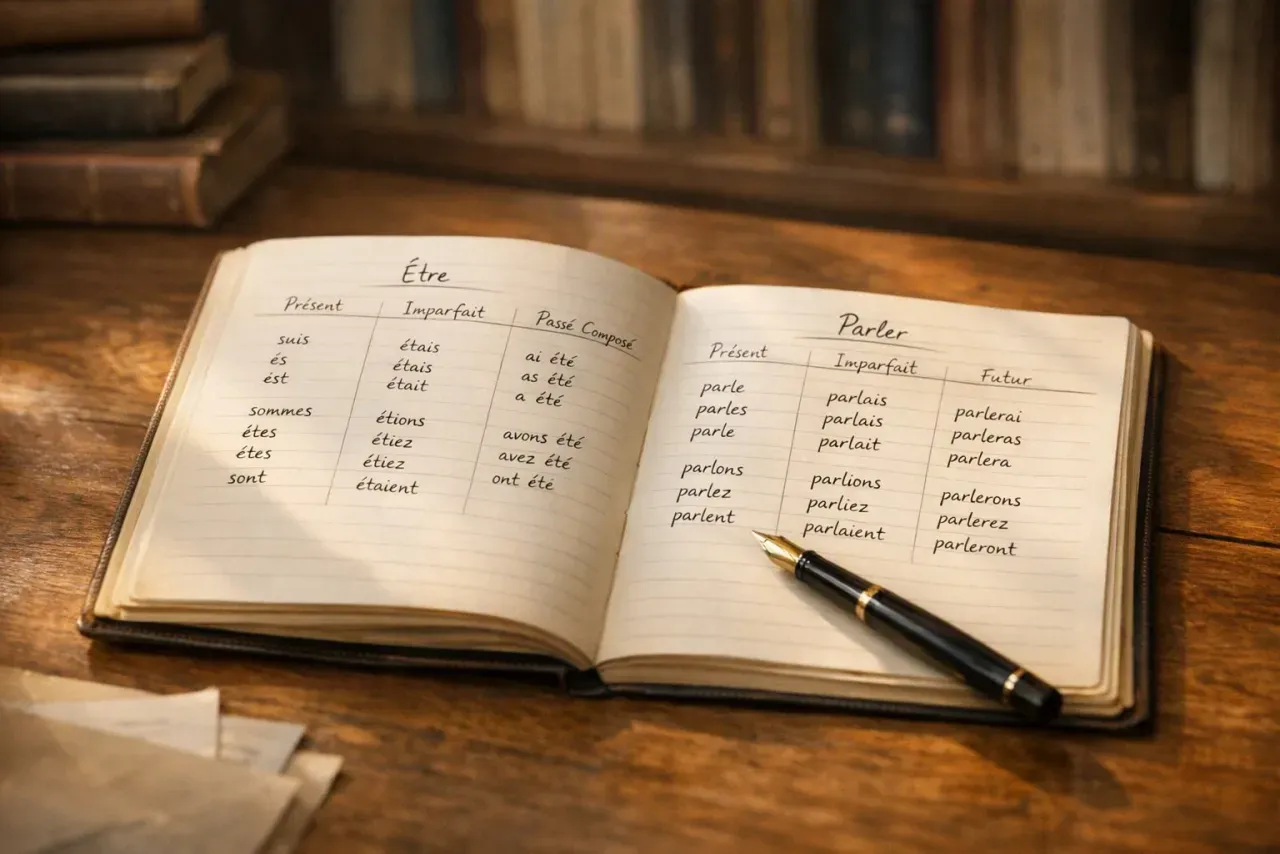 Étre
Présent Imparfait Passé Composé
suis étais ai été
és étais as été
ést était a été
sommes étions avons été
étes étiez avez été
étes étiez ont été
sont étaient
Parler
Présent Imparfait Futur
parle parlais parlerai
parles parlais parleras
parle parlait parlera
parlons parlions parlerons
parlez parliez parlerez
parlent parlaient parleront